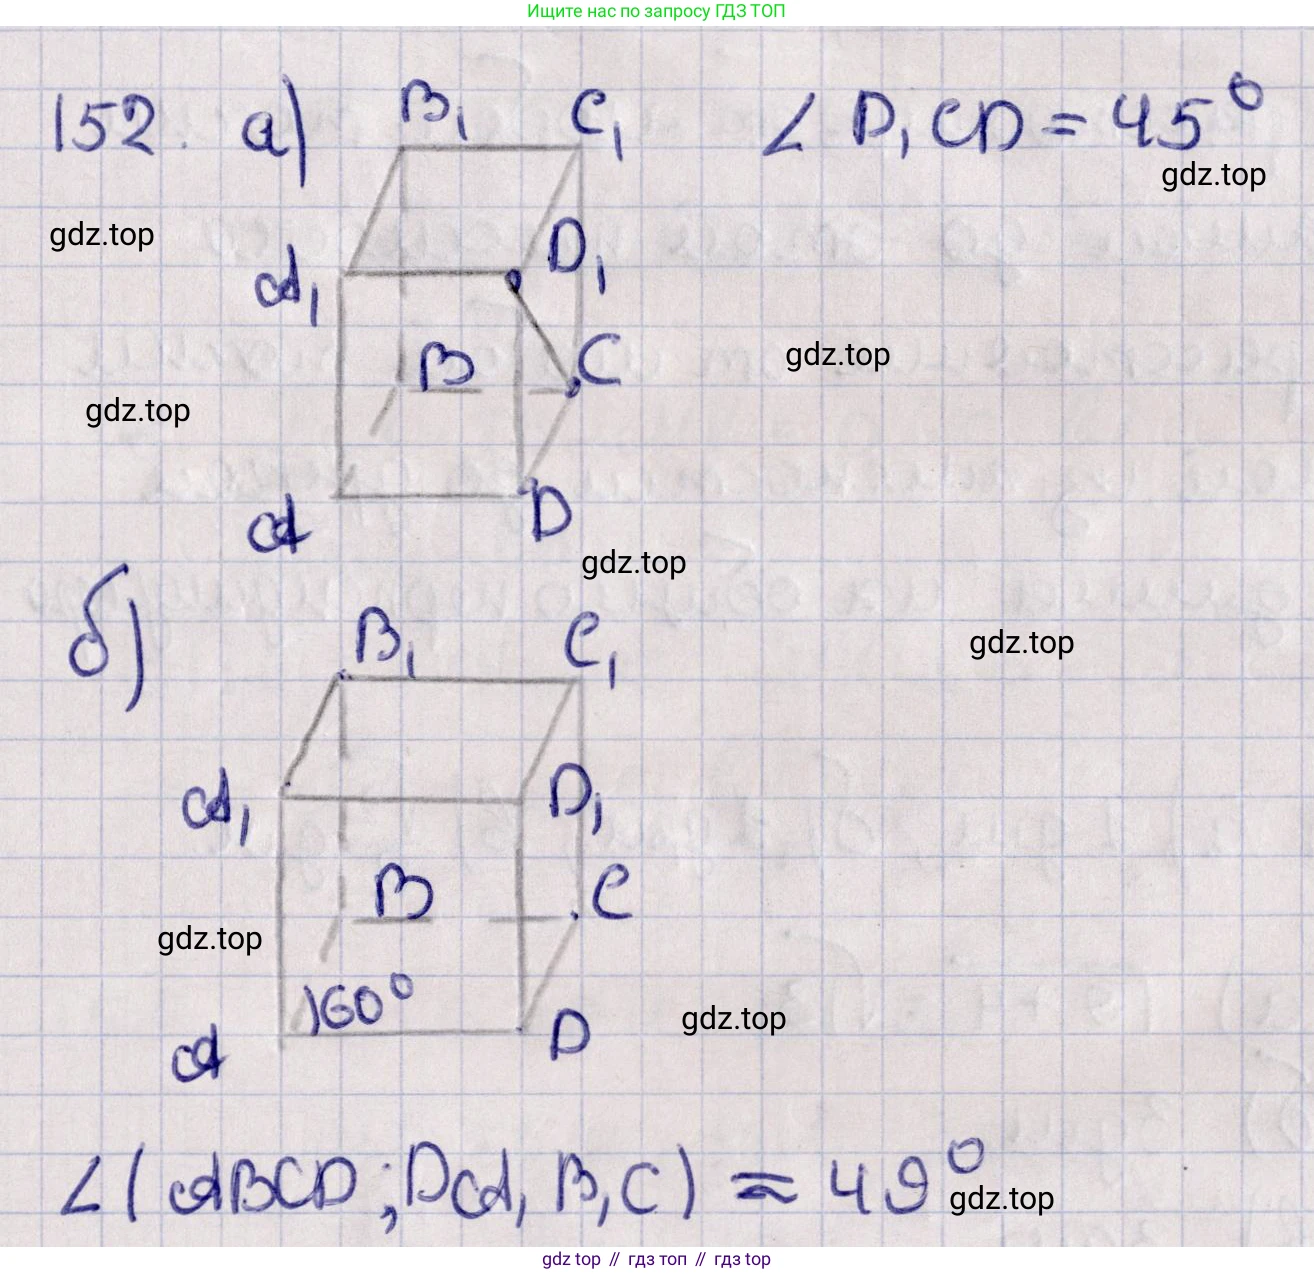 Ищите нас по запросу ГДЗ ТОП
152. а) B₁ C₁ ∠ D₁CD = 45°
gdz.top
gdz.top
A₁ D₁
B C
gdz.top
gdz.top
A D
gdz.top
б) B₁ C₁
gdz.top
A₁ D₁
B C
gdz.top
60°
gdz.top
A D
∠(ABCD; DA₁B₁C) ≈ 49°
gdz.top
gdz top // гдз топ // гдз top